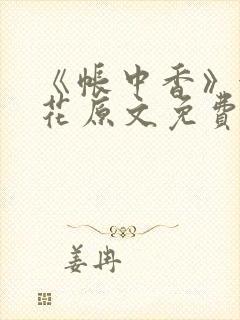 《帐中香》
花原文免費
姜冉